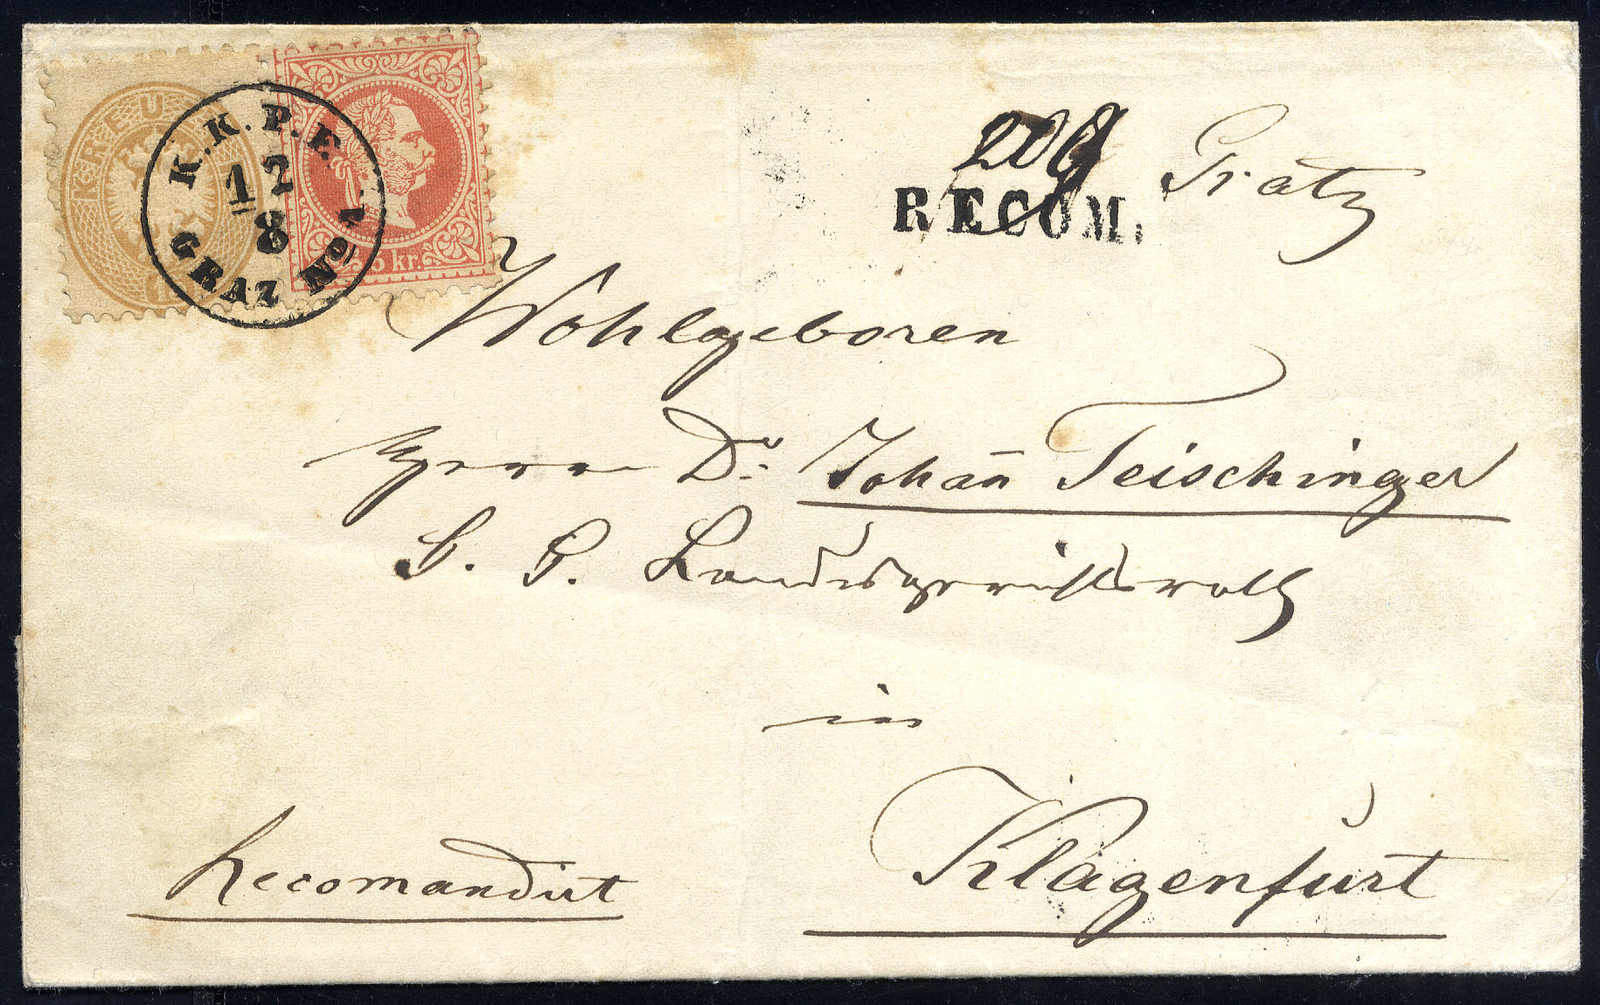 KREU
K.K.P.E.
12
8
GRAZ No 1
5 kr.
RECOM.
Gratz
Wohlgeboren
Herrn Dr. Johan̄ Teischinger
Landesgerichtsrath
in
Klagenfurt
Recomandirt